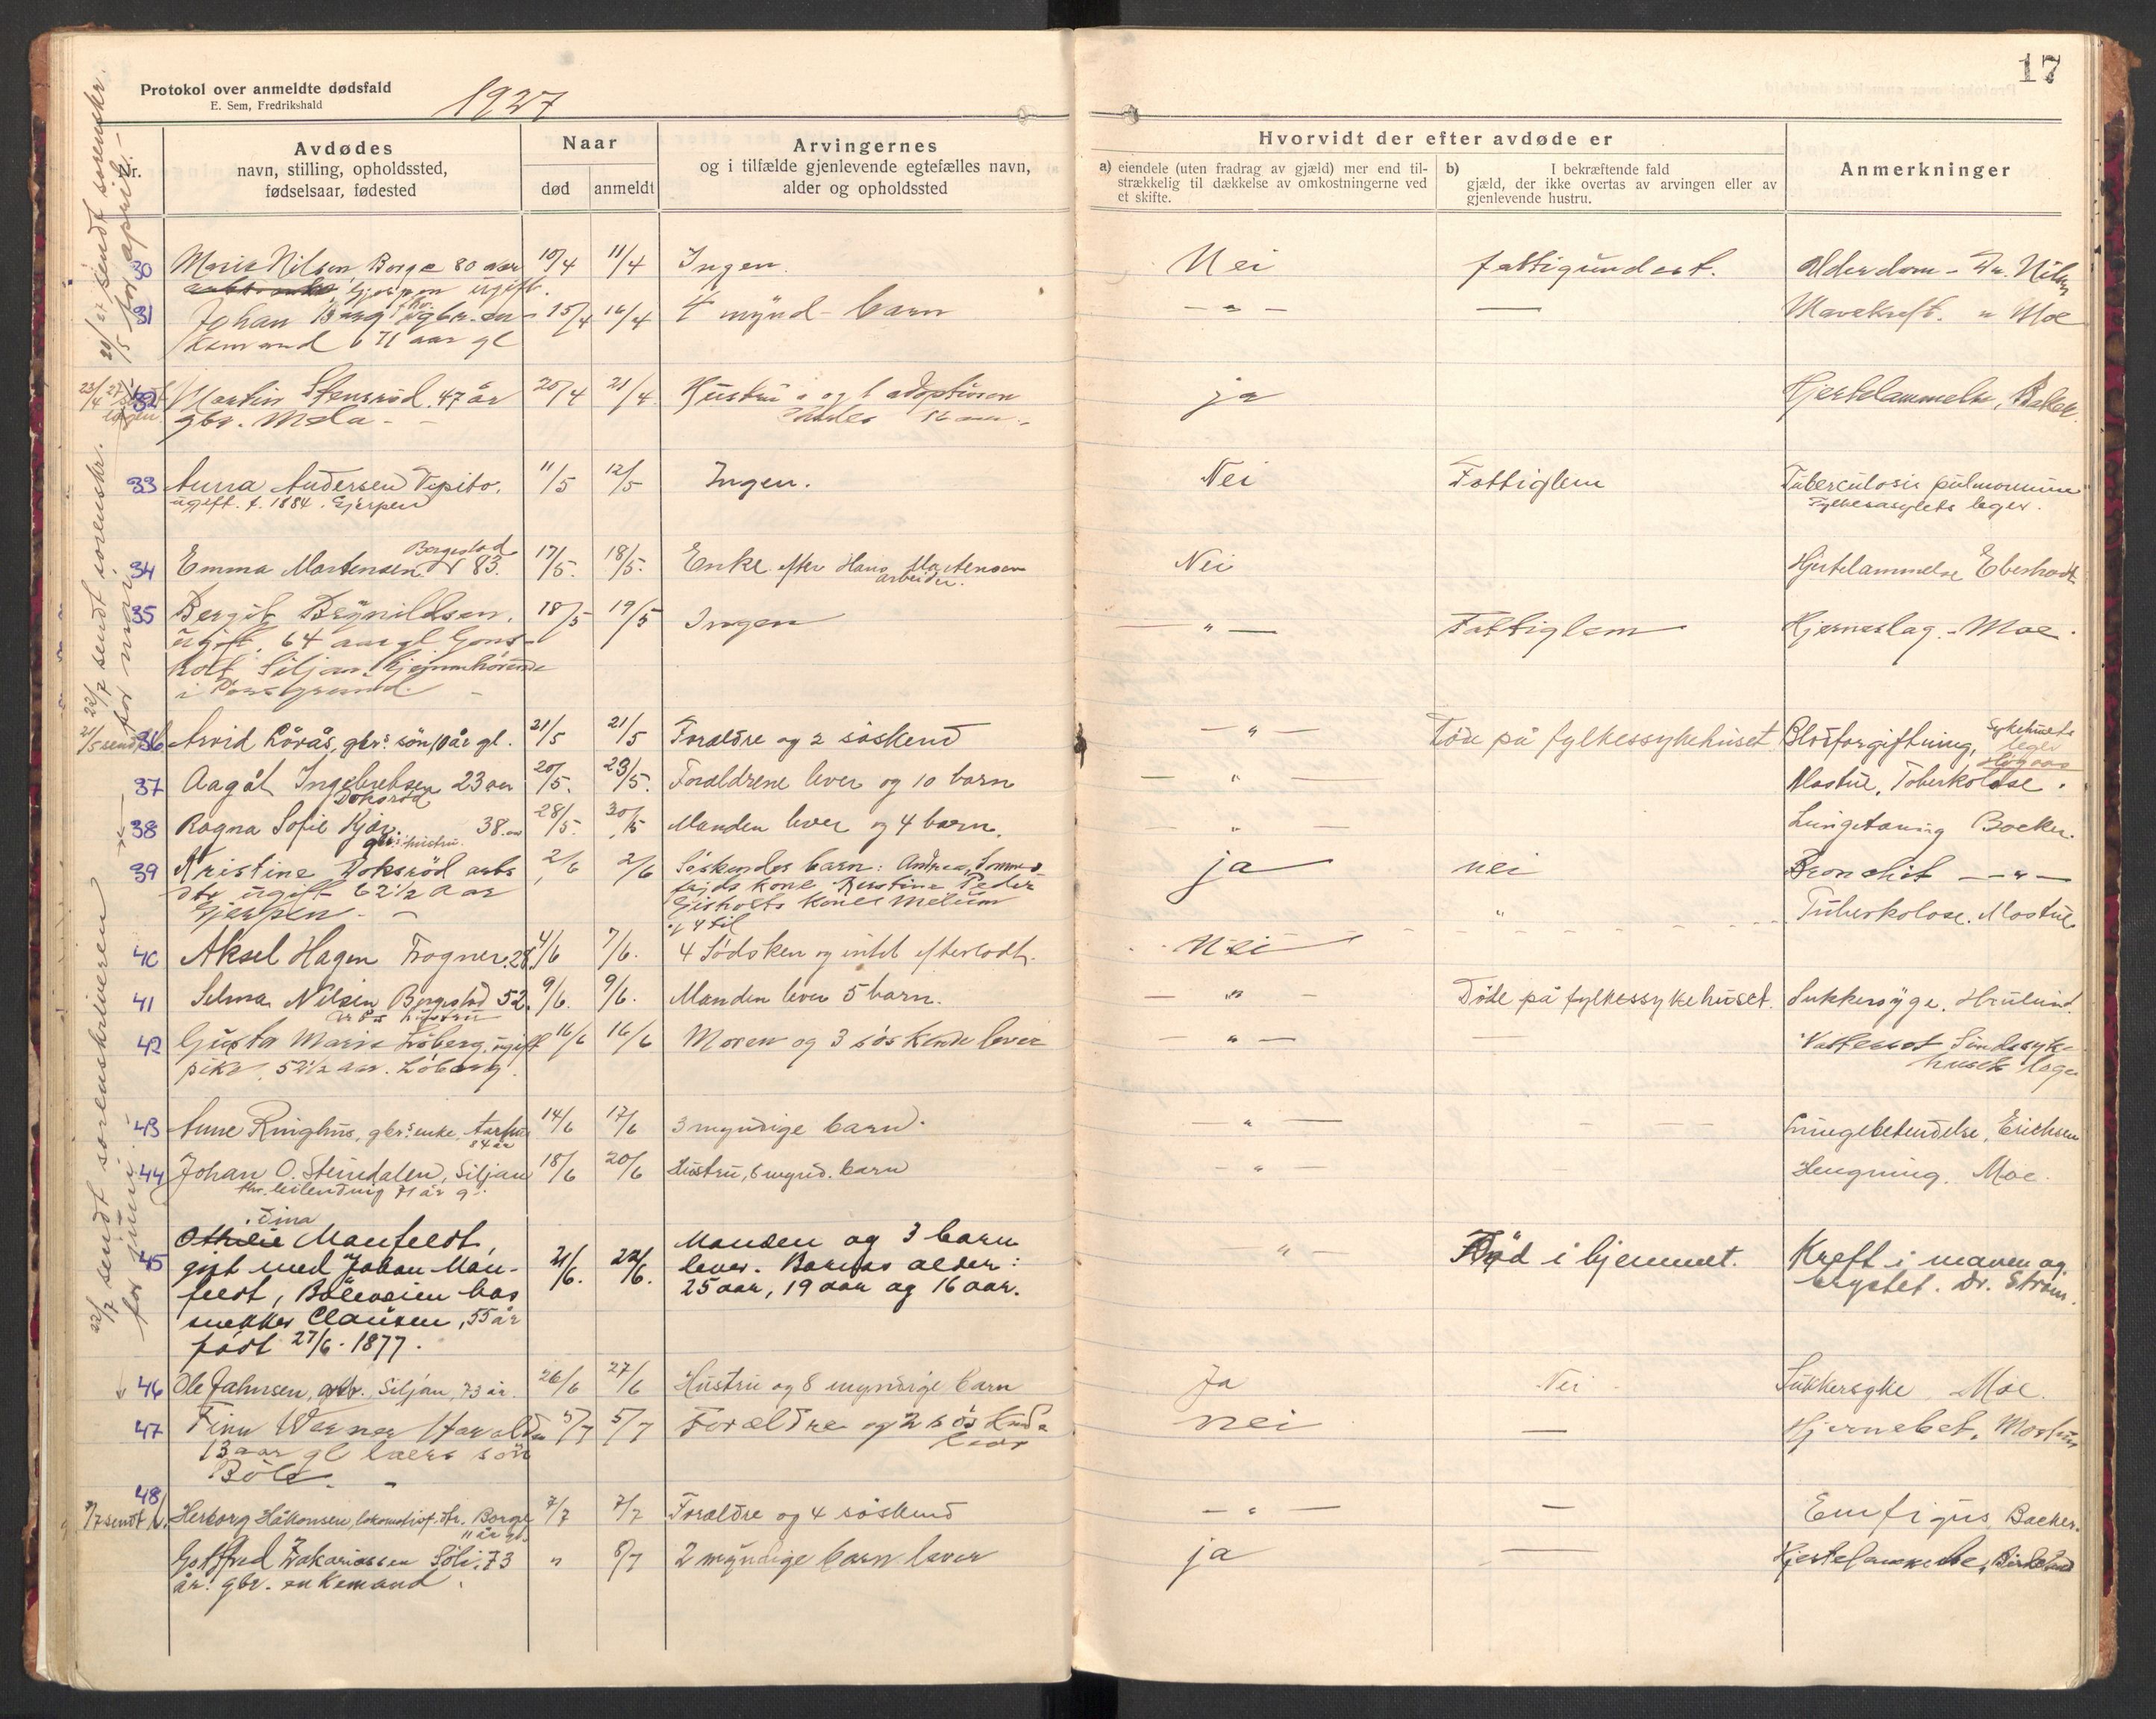 17
Protokol over anmeldte dødsfald
E. Sem, Fredrikshald
1927
Nr.
Avdødes
navn, stilling, opholdssted,
fødselsaar, fødested
Naar
død
anmeldt
Arvingernes
og i tilfælde gjenlevende egtefælles navn,
alder og opholdssted
Hvorvidt der efter avdøde er
a) eiendele (uten fradrag av gjæld) mer end til-
strækkelig til dækkelse av omkostningerne ved
et skifte.
b) I bekræftende fald
gjæld, der ikke overtas av arvingen eller av
gjenlevende hustru.
Anmerkninger
20/5 27 sendt sorenskr.
for april.
30 Marie Nilsen, Borge 80 aar 10/4 11/4 Ingen. Nei fattigunderst. Alderdom - Dr. Nilsen
Gjerpen ugift.
31 Johan Berg fhv. gbr. en- 15/4 16/4 4 mynd- barn - " - — Mavekreft. " Moe
kemand 71 aar gl
32 Martin Stensrød. 47 år 20/4 21/4 Hustru og 1 adoptivsøn ja Hjertelammelse, Bakke
gbr. Mæla - 16 aar.
22/7 sendt sorenskr.
for mai
33 Anna Andersen Vipeto. 11/5 12/5 Ingen. Nei Fattiglem Tuberculosis pulmonum
ugift. f. 1884. Gjerpen Fylkesasylets leger.
34 Emma Martensen. Borgestad 83. 17/5. 18/5. Enke efter Hans Martensen Nei Hjertelammelse Eberhardt
arbeider.
35 Bergit Brynildsen. 18/5 19/5 Ingen — " — Fattiglem Hjerneslag - Moe.
ugift, 64 aar gl. Gons-
holt Siljan. hjemmhørende
i Porsgrund.
21/5 sendt
36 Arvid Lårås, gbrs sön, 10 år gl. 21/5 21/5 Foræeldre og 2 söskend — " — Döde på fylkessykehuset Blodforgiftning, Sykehusets
leger
37 Aagåt Ingebretsen 23 aar 20/5. 23/5. Forældrene lever og 10 barn — " — Mostue. Tuberkolose.
Doksrød
38 Ragna Sofie Kjær. 38. aar 28/5. 30/5 Manden lever og 4 barn. — " — Lungetæring Backer.
gbrs hustru.
39 Kristine Doksröd arbs 2/6 2/6 Söskendes barn: Andreas ja nei Bronchit — " —
dtr ugift 62 1/2 aar kone Kristine Peder
Gjerpen - Gisholts kone Melum
og 4 til
40 Aksel Hagen Frogner. 28. 4/6 7/6. 4 Sødsken og intet efterladt. Nei " Tuberkolose. Mostue
22/7 sendt sorenskriveren
for juni.
41 Selma Nilsen Borgestad 52. 9/6. 9/6. Manden lever 5 barn. — " — Döde på fylkessykehuset. Sukkersyge.
arbs hustru
42 Gusta Marie Löberg, ugift 16/6 16/6 Moren og 3 söskende lever — " — — Vattersot Sindssyke-
pike, 52 1/2 aar. Löberg. husets læge
43 Anne Ringhus, gbrs enke 14/6 17/6 3 myndige barn. " — Lungebetendelse, Erichsen
84 år
44 Johan O. Steindalen, Siljan 18/6 20/6 Hustru, 6 mynd. barn - " — Hengning. Moe.
fhv. leilending 71 år g.
Dina
45 Othilie Manfeldt, 21/6. 22/6. Manden og 3 barn " - Död i hjemmet. Kreft i maven og
gift med Johan Man- lever. Barnas alder: brystet. Dr. Ström.
feldt, Böleveien hos 25 aar, 19 aar og 16 aar.
snekker Clausen, 55 år
født 27/6. 1877.
46 Ole Jahnsen, gbr. Siljan, 73 år. 26/6 27/6 Hustru og 8 myndige barn Ja Nei Sukkersyke Moe.
47 Finn Werner 5/7 5/7 Forældre og 2 söskende nei — Hjernebet. Mostue
13 aar gl. söns lever
Böle
48
7/7 sendt l. Herborg Håkonsen, lokomotivf. dtr. Borge 7/7 7/7 Forældre og 4 söskend — " — — Emfigus Backer.
11 år gl.
Gotfred Zakariassen Söli, 73 " 8/7 2 myndige barn lever ja — Hjertelammelse, Birkeland
år. gbr. enkemand.